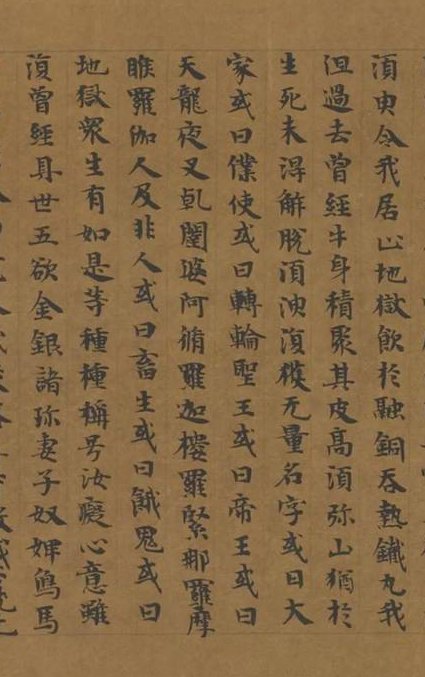 湏臾令我居止地獄飲於融銅吞熱鐵丸我
但過去曾經牛身積聚其皮高湏弥山猶於
生死未淂解脫湏臾復獲无量名字或曰大
家或曰僕使或曰轉輪聖王或曰帝王或曰
天龍夜叉乹闥婆阿脩羅迦樓羅緊那羅摩
睺羅伽人及非人或曰畜生或曰餓鬼或曰
地獄衆生有如是等種種稱号汝癡心意雖
復曾經具世五欲金銀諸珎妻子奴婢象馬